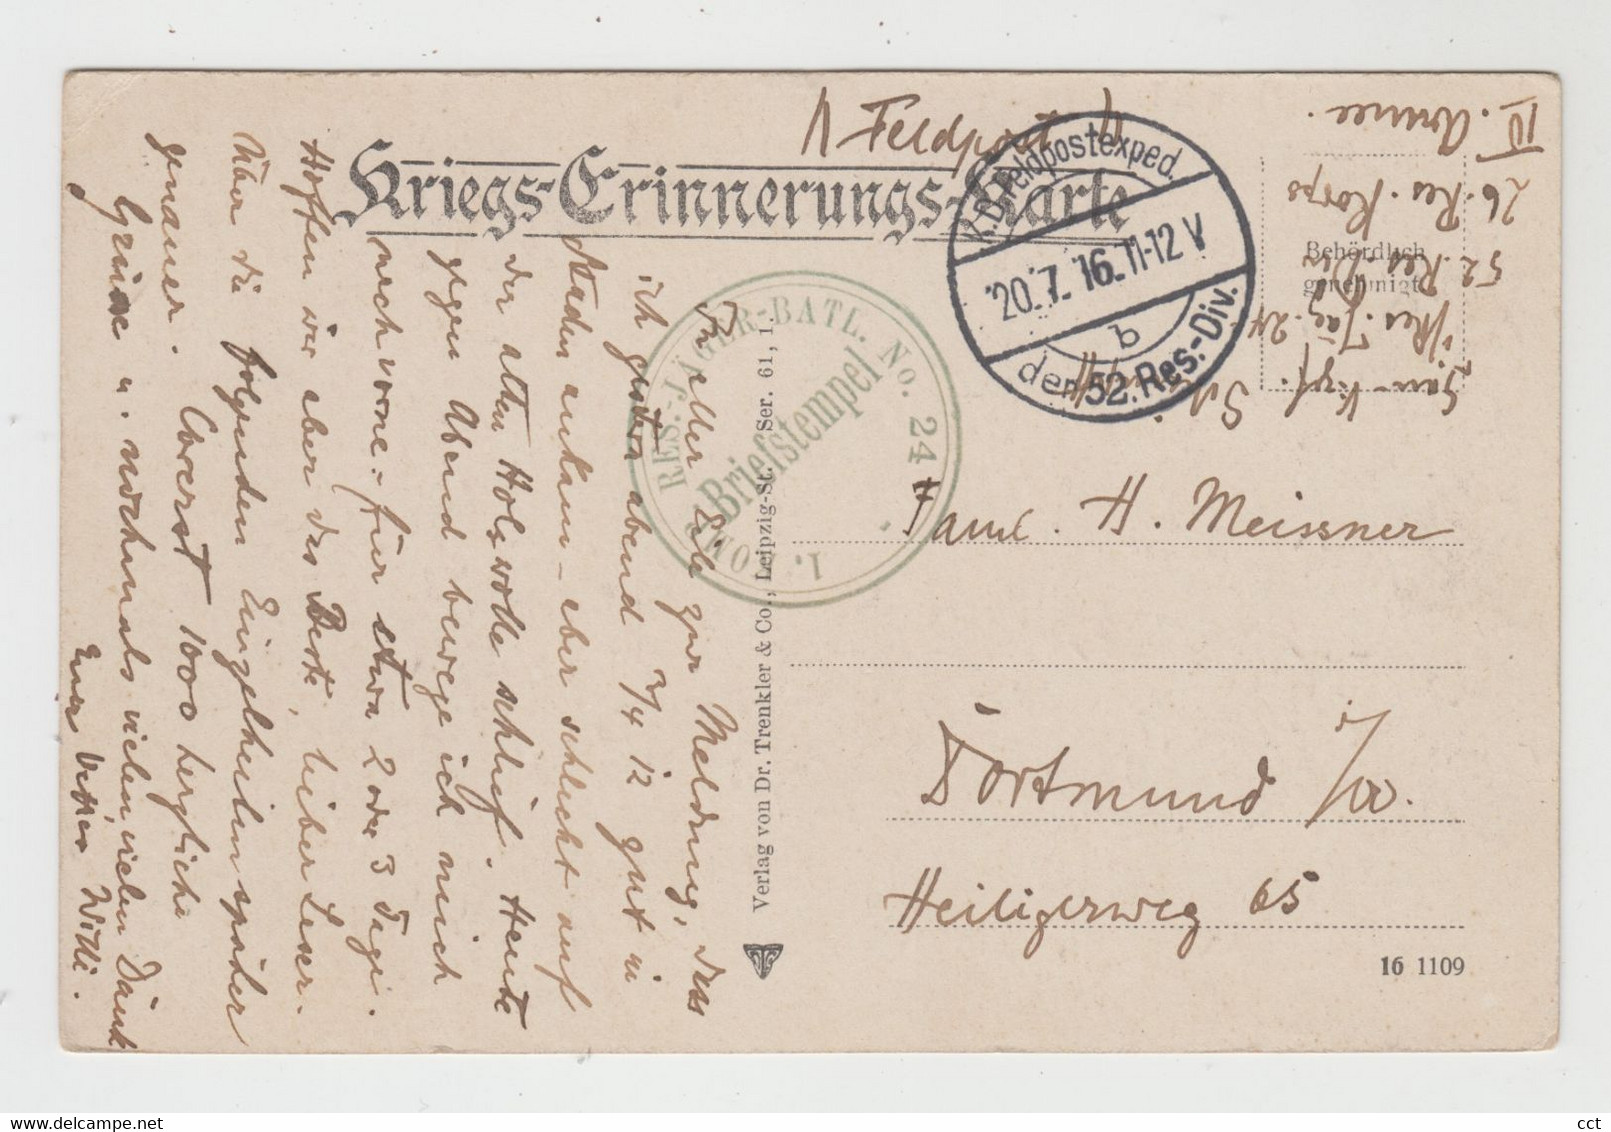 Feldpost
Kriegs-Erinnerungs-Karte
K.D. Feldpostexped.
20.7.16. 11-12 V
b
der 52. Res.-Div.
Behördlich
genehmigt
IV. Armee.
26. Res. Korps
52. Res. Div
Res. Jäg. 24
RES.-JÄGER-BATL. No. 24
Briefstempel
1. KOMP.
Verlag von Dr. Trenkler & Co., Leipzig-St. Ser. 61, 1.
Faml. H. Meissner
Dortmund i/W.
Heiligerweg 65
16 1109
In aller Eile zur Meldung, dass
ich gestern abend 3/4 12 gut in
Staden ankam – aber schlecht auf
der alten Holzwolle schlief. Heute
gegen Abend bewege ich mich
nach vorne – für etwa 2 oder 3 Tage.
Hoffen wir aber das Beste, lieber Leser.
Über die folgenden Einzelheiten später
genauer. Aberst 1000 herzliche
Grüsse u. nochmals vielen, vielen Dank
Euer Willi.